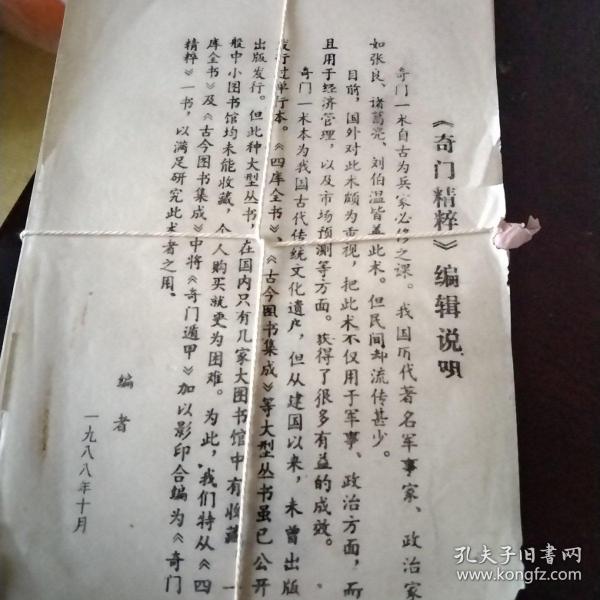 《奇门精粹》编辑说明
奇门一术自古为兵家必修之课。我国历代著名军事家、政治家
如张良、诸葛亮、刘伯温皆善此术。但民间却流传甚少。
目前，国外对此术颇为重视，把此术不仅用于军事、政治方面，而
且用于经济管理，以及市场预测等方面。获得了很多有益的成效。
奇门一术本为我国古代传统文化遗产，但从建国以来，未曾出版
发行过单行本。《四库全书》、《古今图书集成》等大型丛书虽已公开
出版发行。但此种大型丛书，在国内只有几家大图书馆中有收藏，一
般中小图书馆均未能收藏，个人购买就更为困难。为此，我们特从《四
库全书》及《古今图书集成》中将《奇门遁甲》加以影印合编为《奇门
精粹》一书，以满足研究此术者之用。
编者
一九八八年十月
孔夫子旧书网
www.kongfz.com